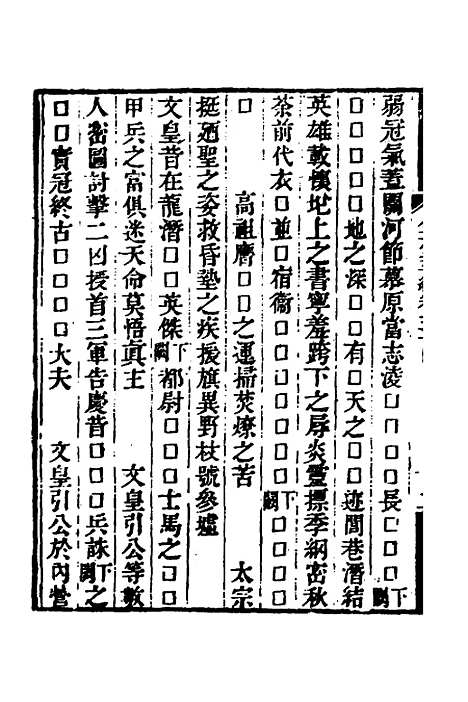 弱冠氣蓋關河節慕原嘗志凌□□□□長□□□下闕
□□□□地之深□□有□天之□□迹閭巷潛結
英雄載懷圯上之書寧羞跨下之辱炎靈摽季網密秋
荼前代衣□並□宿衞□□□□□□□□下闕□□□
□　高祖膺□□之運掃焚燎之苦　太宗
挺廼聖之姿救昏墊之疾援旗異野杖號參墟
文皇昔在龍潛□□英傑下闕都尉□□□士馬之□□
甲兵之富俱迷天命莫悟眞主　文皇引公等數
人密圖討擊二凶授首三軍告慶昔□□□兵誅下闕之
□□□實冠終古□□□□大夫　文皇引公於內營